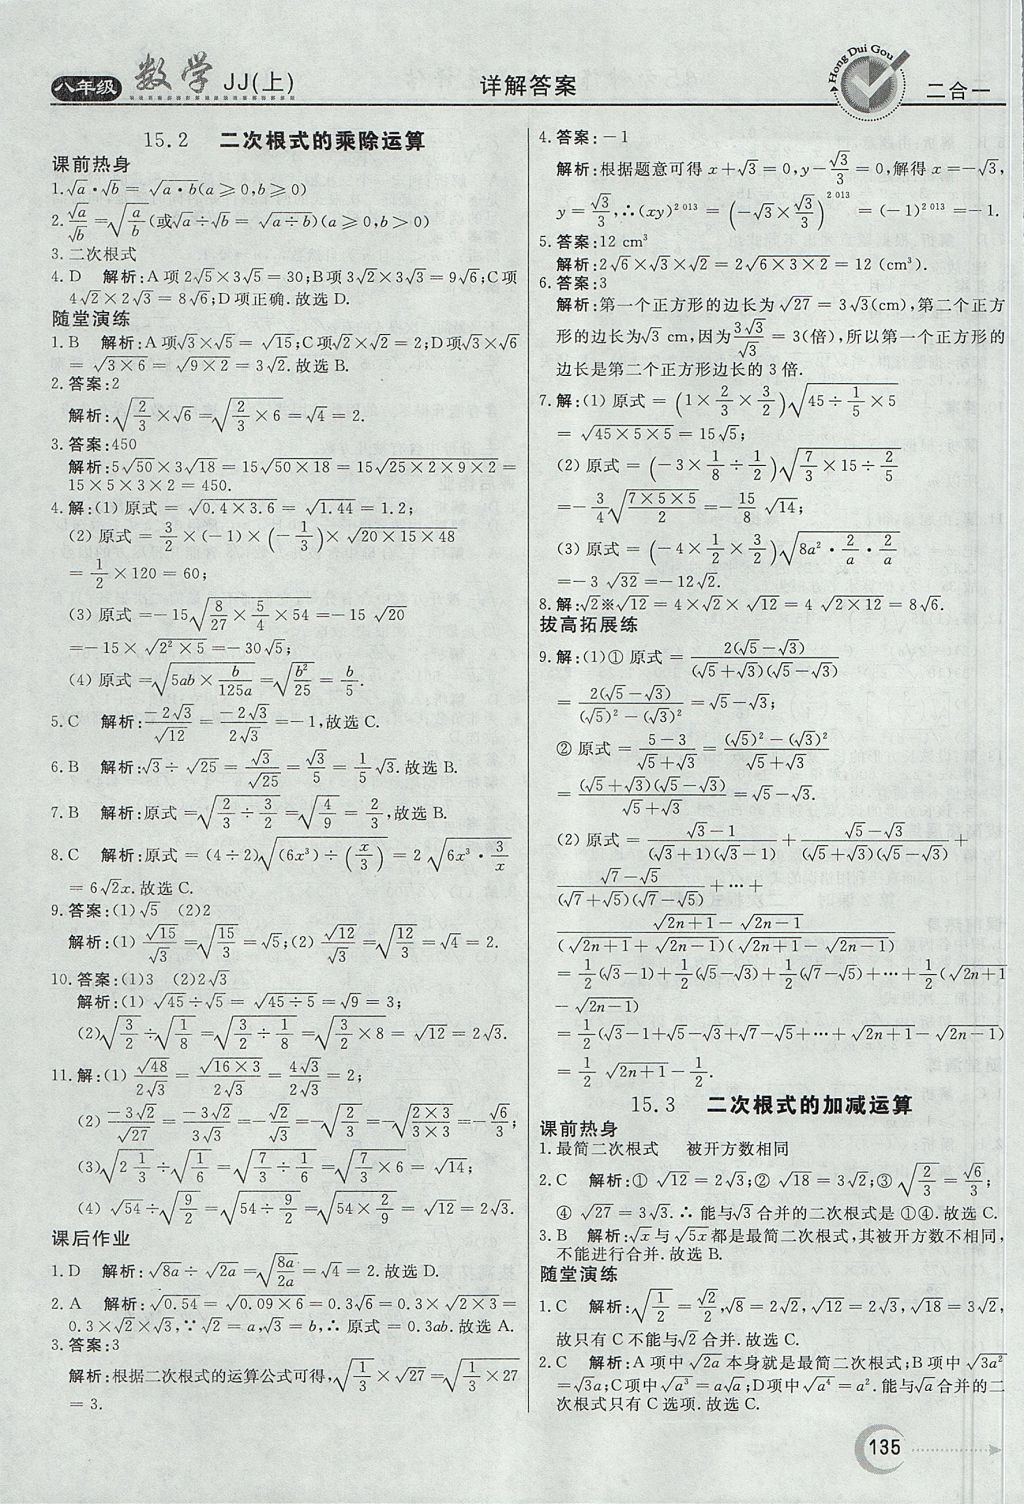 八年级 数学 JJ(上)
详解答案
Hong Dui Gou
二合一
15.2 二次根式的乘除运算
课前热身
1.√a·√b=√(a·b)(a⩾0,b⩾0)
2.√a/√b=√(a/b)(或√a÷√b=√(a÷b))(a⩾0,b>0)
3.二次根式
4.D 解析:A项2√5×3√5=30;B项3√2×3√3=9√6;C项
4√2×2√3=8√6;D项正确.故选D.
随堂演练
1.B 解析:A项√3×√5=√15;C项√2×√2=2;D项√3×√6
=√(3×6)=√(9×2)=3√2.故选B.
2.答案:2
解析:√(2/3)×√6=√(2/3×6)=√4=2.
3.答案:450
解析:5√50×3√18=15√(50×18)=15√(25×2×9×2)=
15×5×3×2=450.
4.解:(1)原式=√(0.4×3.6)=√1.44=1.2;
(2)原式=3/2×(-1)×(-1/3)×√(20×15×48)
=1/2×120=60;
(3)原式=-15√(8/27×5/4×54)=-15√20
=-15×√(2²×5)=-30√5;
(4)原式=√(5ab×b/125a)=√(b²/25)=b/5.
5.C 解析:-2√3/√12=-2√3/2√3=-1,故选C.
6.B 解析:√3÷√25=√3/√25=√3/5=1/5√3.故选B.
7.B 解析:原式=√(2/3÷3/2)=√(4/9)=2/3,故选B.
8.C 解析:原式=(4÷2)√((6x³)÷(x/3))=2√(6x³·3/x)
=6√2x.故选C.
9.答案:(1)√5 (2)2
解析:(1)√15/√3=√(15/3)=√5;(2)√12/√3=√(12/3)=√4=2.
10.答案:(1)3 (2)2√3
解析:(1)√45÷√5=√(45÷5)=√9=3;
(2)√(3/2)÷√(1/8)=√(3/2÷1/8)=√(3/2×8)=√12=2√3.
11.解:(1)√48/2√3=√(16×3)/2√3=4√3/2√3=2;
(2)-3√2/√27=-3√2/3√3=-√2/√3=-√(2/3)=-√((2×3)/(3×3))=-√6/3;
(3)√(2 1/3)÷√(1/6)=√(7/3÷1/6)=√(7/3×6)=√14;
(4)√54÷√(9/2)=√(54÷9/2)=√(54×2/9)=√12=2√3.
课后作业
1.D 解析:√8a÷√2a=√(8a/2a)=√4=2.故选D.
2.A 解析:√0.54=√(0.09×6)=0.3√6=0.3×√(2×3)=
0.3×√2×√3,∵√2=a,√3=b,∴原式=0.3ab.故选A.
3.答案:3
解析:根据二次根式的运算公式可得,√(1/3)×√27=√(1/3×27)
=3.
4.答案:-1
解析:根据题意可得x+√3=0,y-√3/3=0,解得x=-√3,
y=√3/3,∴(xy)²⁰¹³=(-√3×√3/3)²⁰¹³=(-1)²⁰¹³=-1.
5.答案:12 cm³
解析:2√6×√3×√2=2√(6×3×2)=12(cm³).
6.答案:3
解析:第一个正方形的边长为√27=3√3(cm),第二个正方
形的边长为√3 cm,因为3√3/√3=3(倍),所以第一个正方形的
边长是第二个正方形边长的3倍.
7.解:(1)原式=(1×2/3×3/2)√(45÷1/5×5)
=√(45×5×5)=15√5;
(2)原式=(-3×1/8÷1/2)√(7/3×15÷2/5)
=-3/4√((7×5×5)/2)=-15/8√14;
(3)原式=(-4×1/2×3/2)√(8a²·2/a·2/a)
=-3√32=-12√2.
8.解:√2※√12=4×√2×√12=4√(2×12)=8√6.
拔高拓展练
9.解:(1)①原式=2(√5-√3)/((√5+√3)(√5-√3))
=2(√5-√3)/((√5)²-(√3)²)=√5-√3;
②原式=(5-3)/(√5+√3)=((√5)²-(√3)²)/(√5+√3)
=(√5+√3)(√5-√3)/(√5+√3)=√5-√3.
(2)原式=(√3-1)/((√3+1)(√3-1))+(√5-√3)/((√5+√3)(√5-√3))+
(√7-√5)/((√7+√5)(√7-√5))+…+
(√(2n+1)-√(2n-1))/((√(2n+1)+√(2n-1))(√(2n+1)-√(2n-1)))
=1/2(√3-1)+1/2(√5-√3)+1/2(√7-√5)+…+1/2(√(2n+1)
-√(2n-1))
=1/2(√3-1+√5-√3+√7-√5+…+√(2n+1)-√(2n-1))
=1/2√(2n+1)-1/2.
15.3 二次根式的加减运算
课前热身
1.最简二次根式 被开方数相同
2.C 解析:①√12=2√3;②√18=3√2;③√(2/3)=√6/3;
④√27=3√3.∴能与√3合并的二次根式是①④.故选C.
3.B 解析:√x与√5x都是最简二次根式,其被开方数不相同,
不能进行合并.故选B.
随堂演练
1.C 解析:√(1/2)=√2/2,√8=2√2,√12=2√3,√18=3√2,
故只有C不能与√2合并.故选C.
2.C 解析:A项中√2a本身就是最简二次根式;B项中√3a²
=√3a;C项中√a³=a√a;D项中√a⁴=a².能与√a合并的二
次根式只有C选项.故选C.
135